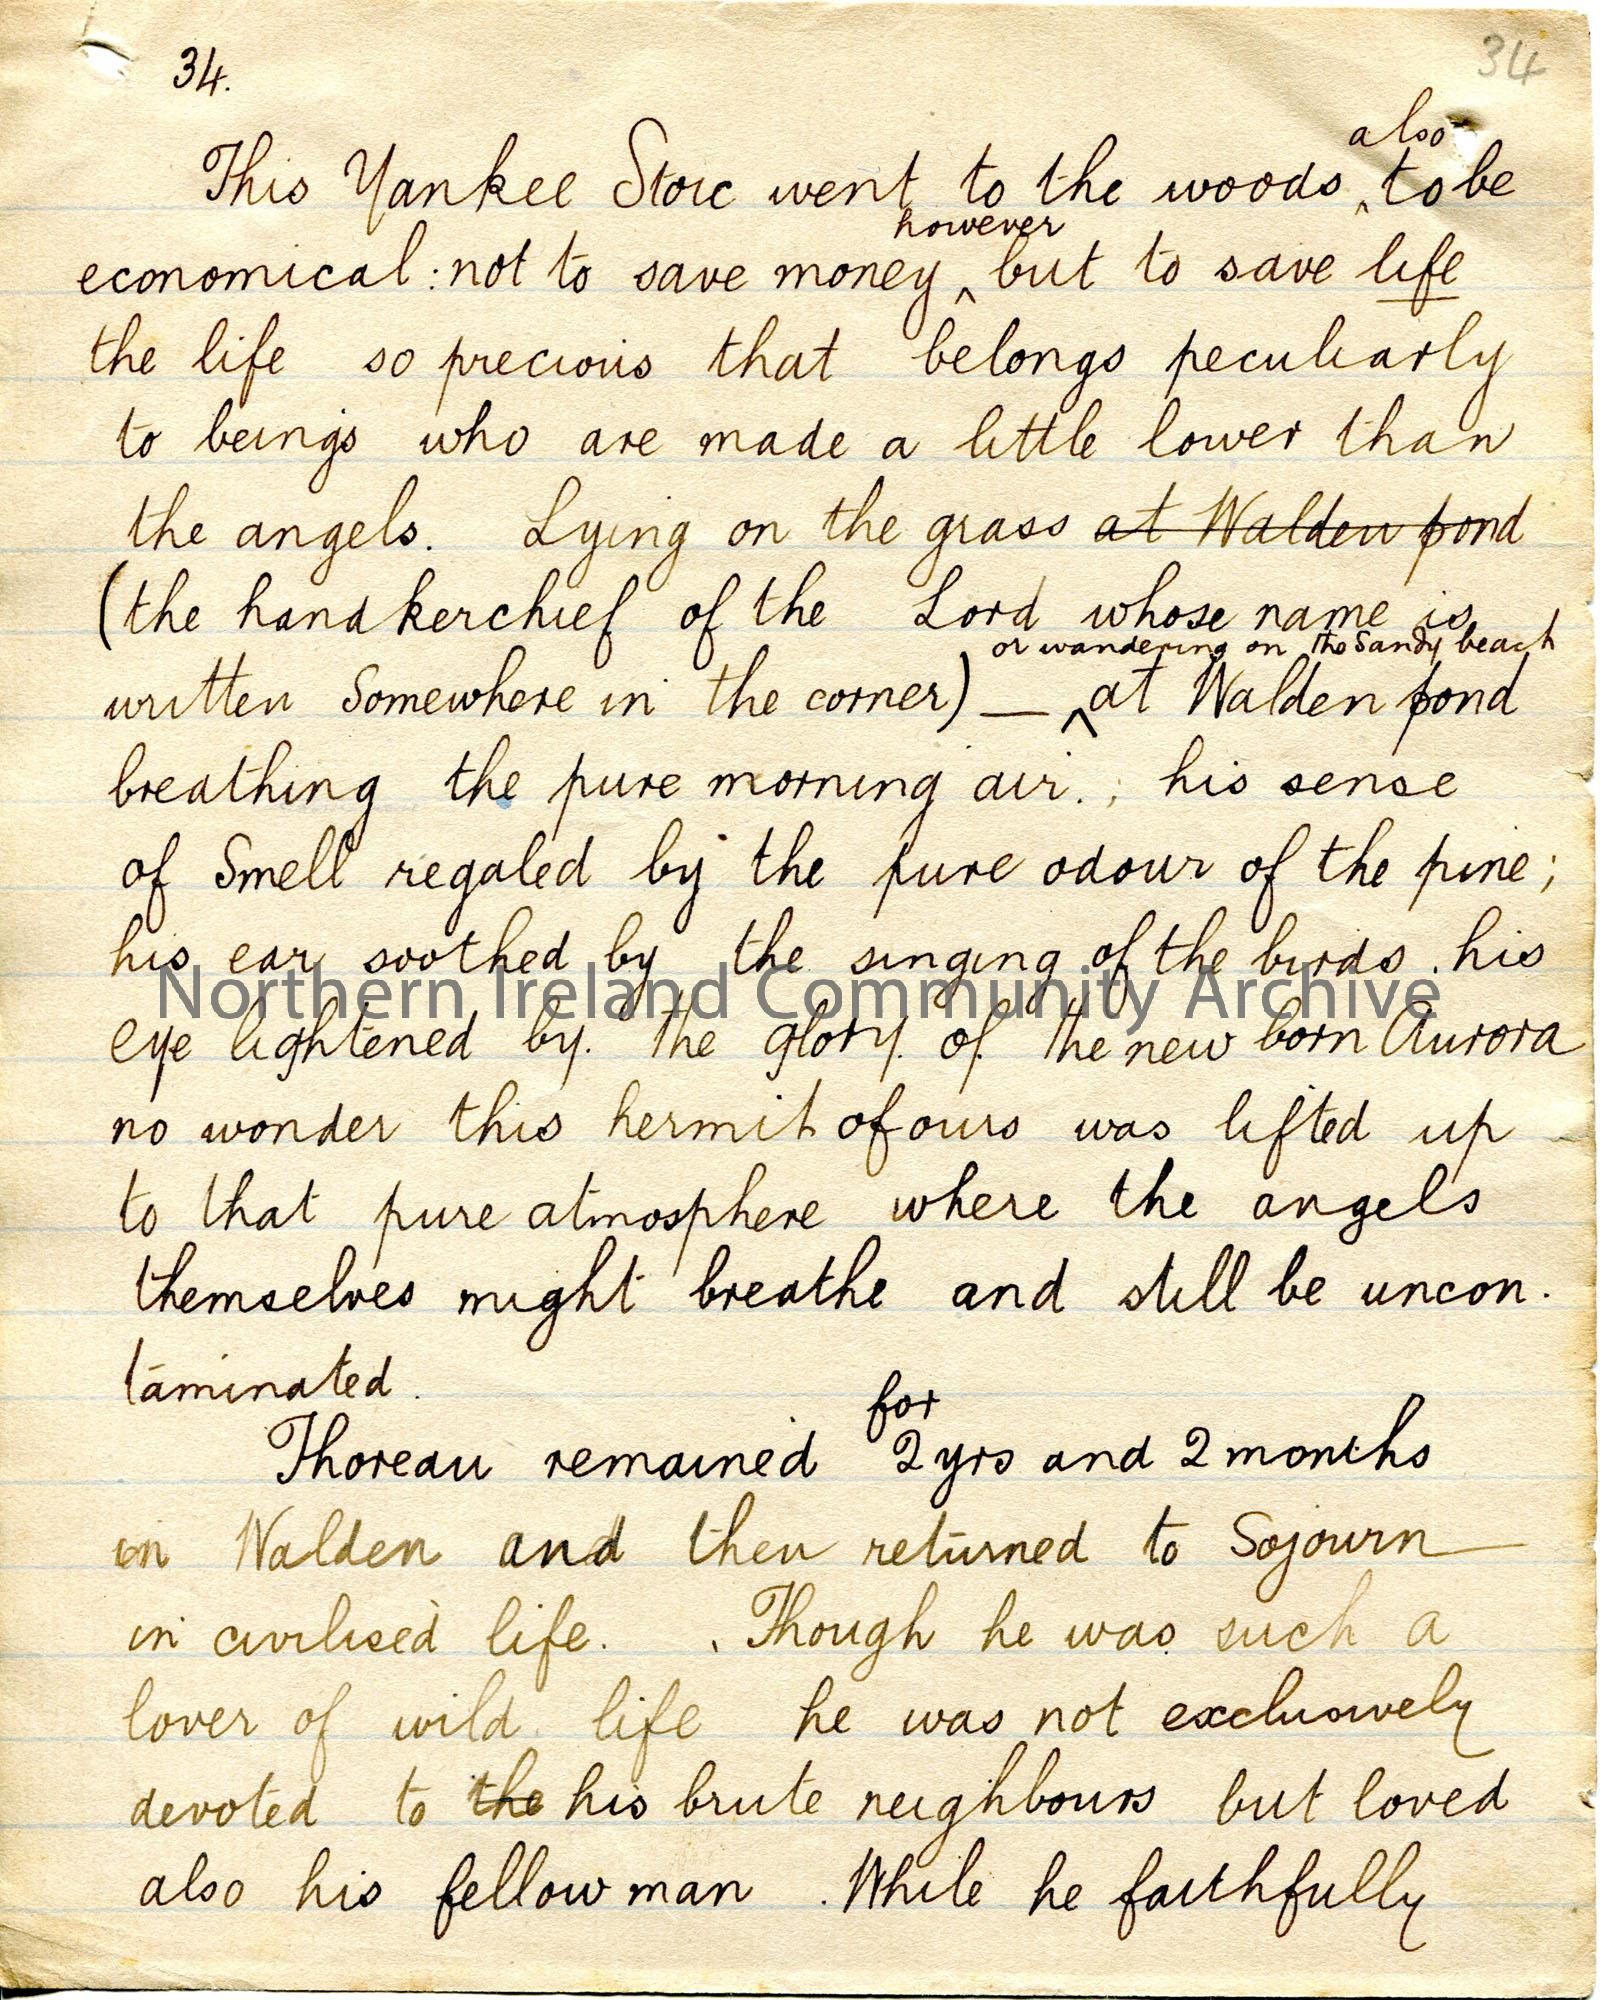 34.
34
This Yankee Stoic went to the woods ^also to be
economical: not to save money ^however but to save life
the life so precious that belongs peculiarly
to beings who are made a little lower than
the angels. Lying on the grass at Walden pond
(the handkerchief of the Lord whose name is
or wandering on the Sandy beach
written Somewhere in the corner) — ^ at Walden pond
breathing the pure morning air.; his sense
of Smell regaled by the pure odour of the pine;
his ear soothed by the singing of the birds. his
Northern Ireland Community Archive
eye lightened by the glory of the new born Aurora
no wonder this hermit of ours was lifted up
to that pure atmosphere where the angels
themselves might breathe and still be uncon.
taminated.
for
Thoreau remained 2 yrs and 2 months
in Walden and then returned to Sojourn
in civilised life. Though he was such a
lover of wild life he was not exclusively
devoted to the his brute neighbours but loved
also his fellow man. While he faithfully